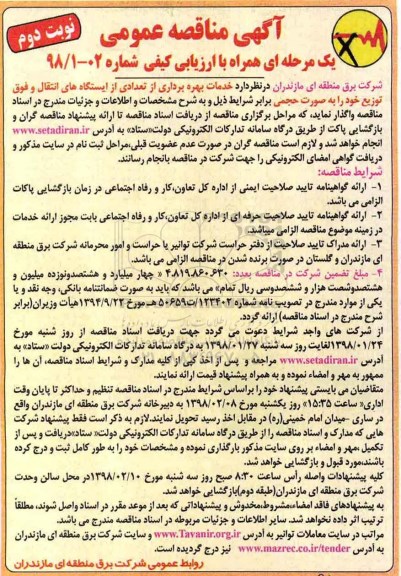 آگهی مناقصه عمومی
نوبت دوم
یک مرحله ای همراه با ارزیابی کیفی شماره ۰۲-۹۸/۱
شرکت برق منطقه ای مازندران درنظردارد خدمات بهره برداری از تعدادی از ایستگاه های انتقال و فوق
توزیع خود را به صورت حجمی برابر شرایط ذیل و به شرح مشخصات و اطلاعات و جزئیات مندرج در اسناد
مناقصه واگذار نماید، که مراحل برگزاری مناقصه از دریافت اسناد مناقصه تا ارائه پیشنهاد مناقصه گران و
بازگشایی پاکت از طریق درگاه سامانه تدارکات الکترونیکی دولت«ستاد» به آدرس www.setadiran.ir
انجام خواهد شد و لازم است مناقصه گران در صورت عدم عضویت قبلی،مراحل ثبت نام در سایت مذکور و
دریافت گواهی امضای الکترونیکی را جهت شرکت در مناقصه بانجام رسانند.
شرایط مناقصه:
۱- ارائه گواهینامه تایید صلاحیت ایمنی از اداره کل تعاون،کار و رفاه اجتماعی در زمان بازگشایی پاکات
الزامی می باشد.
۲- ارائه گواهینامه تایید صلاحیت حرفه ای از اداره کل تعاون،کار و رفاه اجتماعی بابت مجوز ارائه خدمات
در زمینه موضوع مناقصه الزامی میباشد.
۳- ارائه مدراک تایید صلاحیت از دفتر حراست شرکت توانیر یا حراست و امور محرمانه شرکت برق منطقه
ای مازندران و گلستان در صورت برنده شدن در مناقصه الزامی می باشد.
۴- مبلغ تضمین شرکت در مناقصه بعدد: ۴.۸۱۹.۸۶۰.۶۳۰ « چهار میلیارد و هشتصدونوزده میلیون و
هشتصدوشصت هزار و ششصدوسی ریال تمام» می باشد که باید به صورت ضمانتنامه بانکی، وجه نقد و یا
یکی از موارد مندرج در تصویب نامه شماره ۱۲۳۴۰۲/ت۵۰۶۵۹ هـ مورخ ۱۳۹۴/۹/۲۲هیأت وزیران(برابر
شرح مندرج در اسناد مناقصه) ارائه گردد.
از شرکت های واجد شرایط دعوت می گردد جهت دریافت اسناد مناقصه از روز شنبه مورخ
۱۳۹۸/۰۱/۲۴لغایت روز سه شنبه ۱۳۹۸/۰۱/۲۷ به درگاه سامانه تدارکات الکترونیکی دولت «ستاد» به
آدرس www.setadiran.ir مراجعه و پس از اخذ کپی از کلیه مدارک و شرایط اسناد مناقصه، آن ها را
ممهور به مهر و امضاء نموده و به همراه پیشنهاد قیمت ارائه نمایند.
متقاضیان می بایستی پیشنهاد خود را براساس شرایط مندرج در اسناد مناقصه تنظیم و حداکثر تا پایان وقت
اداری« ساعت ۱۵:۳۵» روز یکشنبه مورخ ۱۳۹۸/۰۲/۰۸ به دبیرخانه شرکت برق منطقه ای مازندران واقع
در ساری -میدان امام خمینی(ره) در مقابل اخذ رسید تحویل نمایند.لازم به ذکر است فقط پیشنهاد شرکت
هایی که مدارک و اسناد مناقصه را از طریق درگاه سامانه تدارکات الکترونیکی دولت« ستاد»دریافت و پس از
تکمیل ،مهر و امضاء بر روی سایت مذکور بارگذاری نموده و مشخصات خود را به طور کامل ثبت و درج کرده
باشند،مورد قبول و بازگشایی خواهد شد.
کلیه پیشنهادات واصله رأس ساعت ۸:۳۰ صبح روز سه شنبه مورخ ۱۳۹۸/۰۲/۱۰در محل سالن وحدت
شرکت برق منطقه ای مازندران(طبقه دوم)بازگشایی خواهد شد.
به پیشنهادهای فاقد امضاء،مشروط،مخدوش و پیشنهاداتی که بعد از موعد مقرر در اسناد واصل شوند، مطلقاً
ترتیب اثر داده نخواهد شد. سایر اطلاعات و جزئیات مربوطه در اسناد مناقصه مندرج می باشد.
مراتب در سایت معاملات توانیر به آدرس www.Tavanir.org.ir و سایت شرکت برق منطقه ای مازندران
به آدرس www.mazrec.co.ir/tender نیز درج گردیده است.
روابط عمومی شرکت برق منطقه ای مازندران